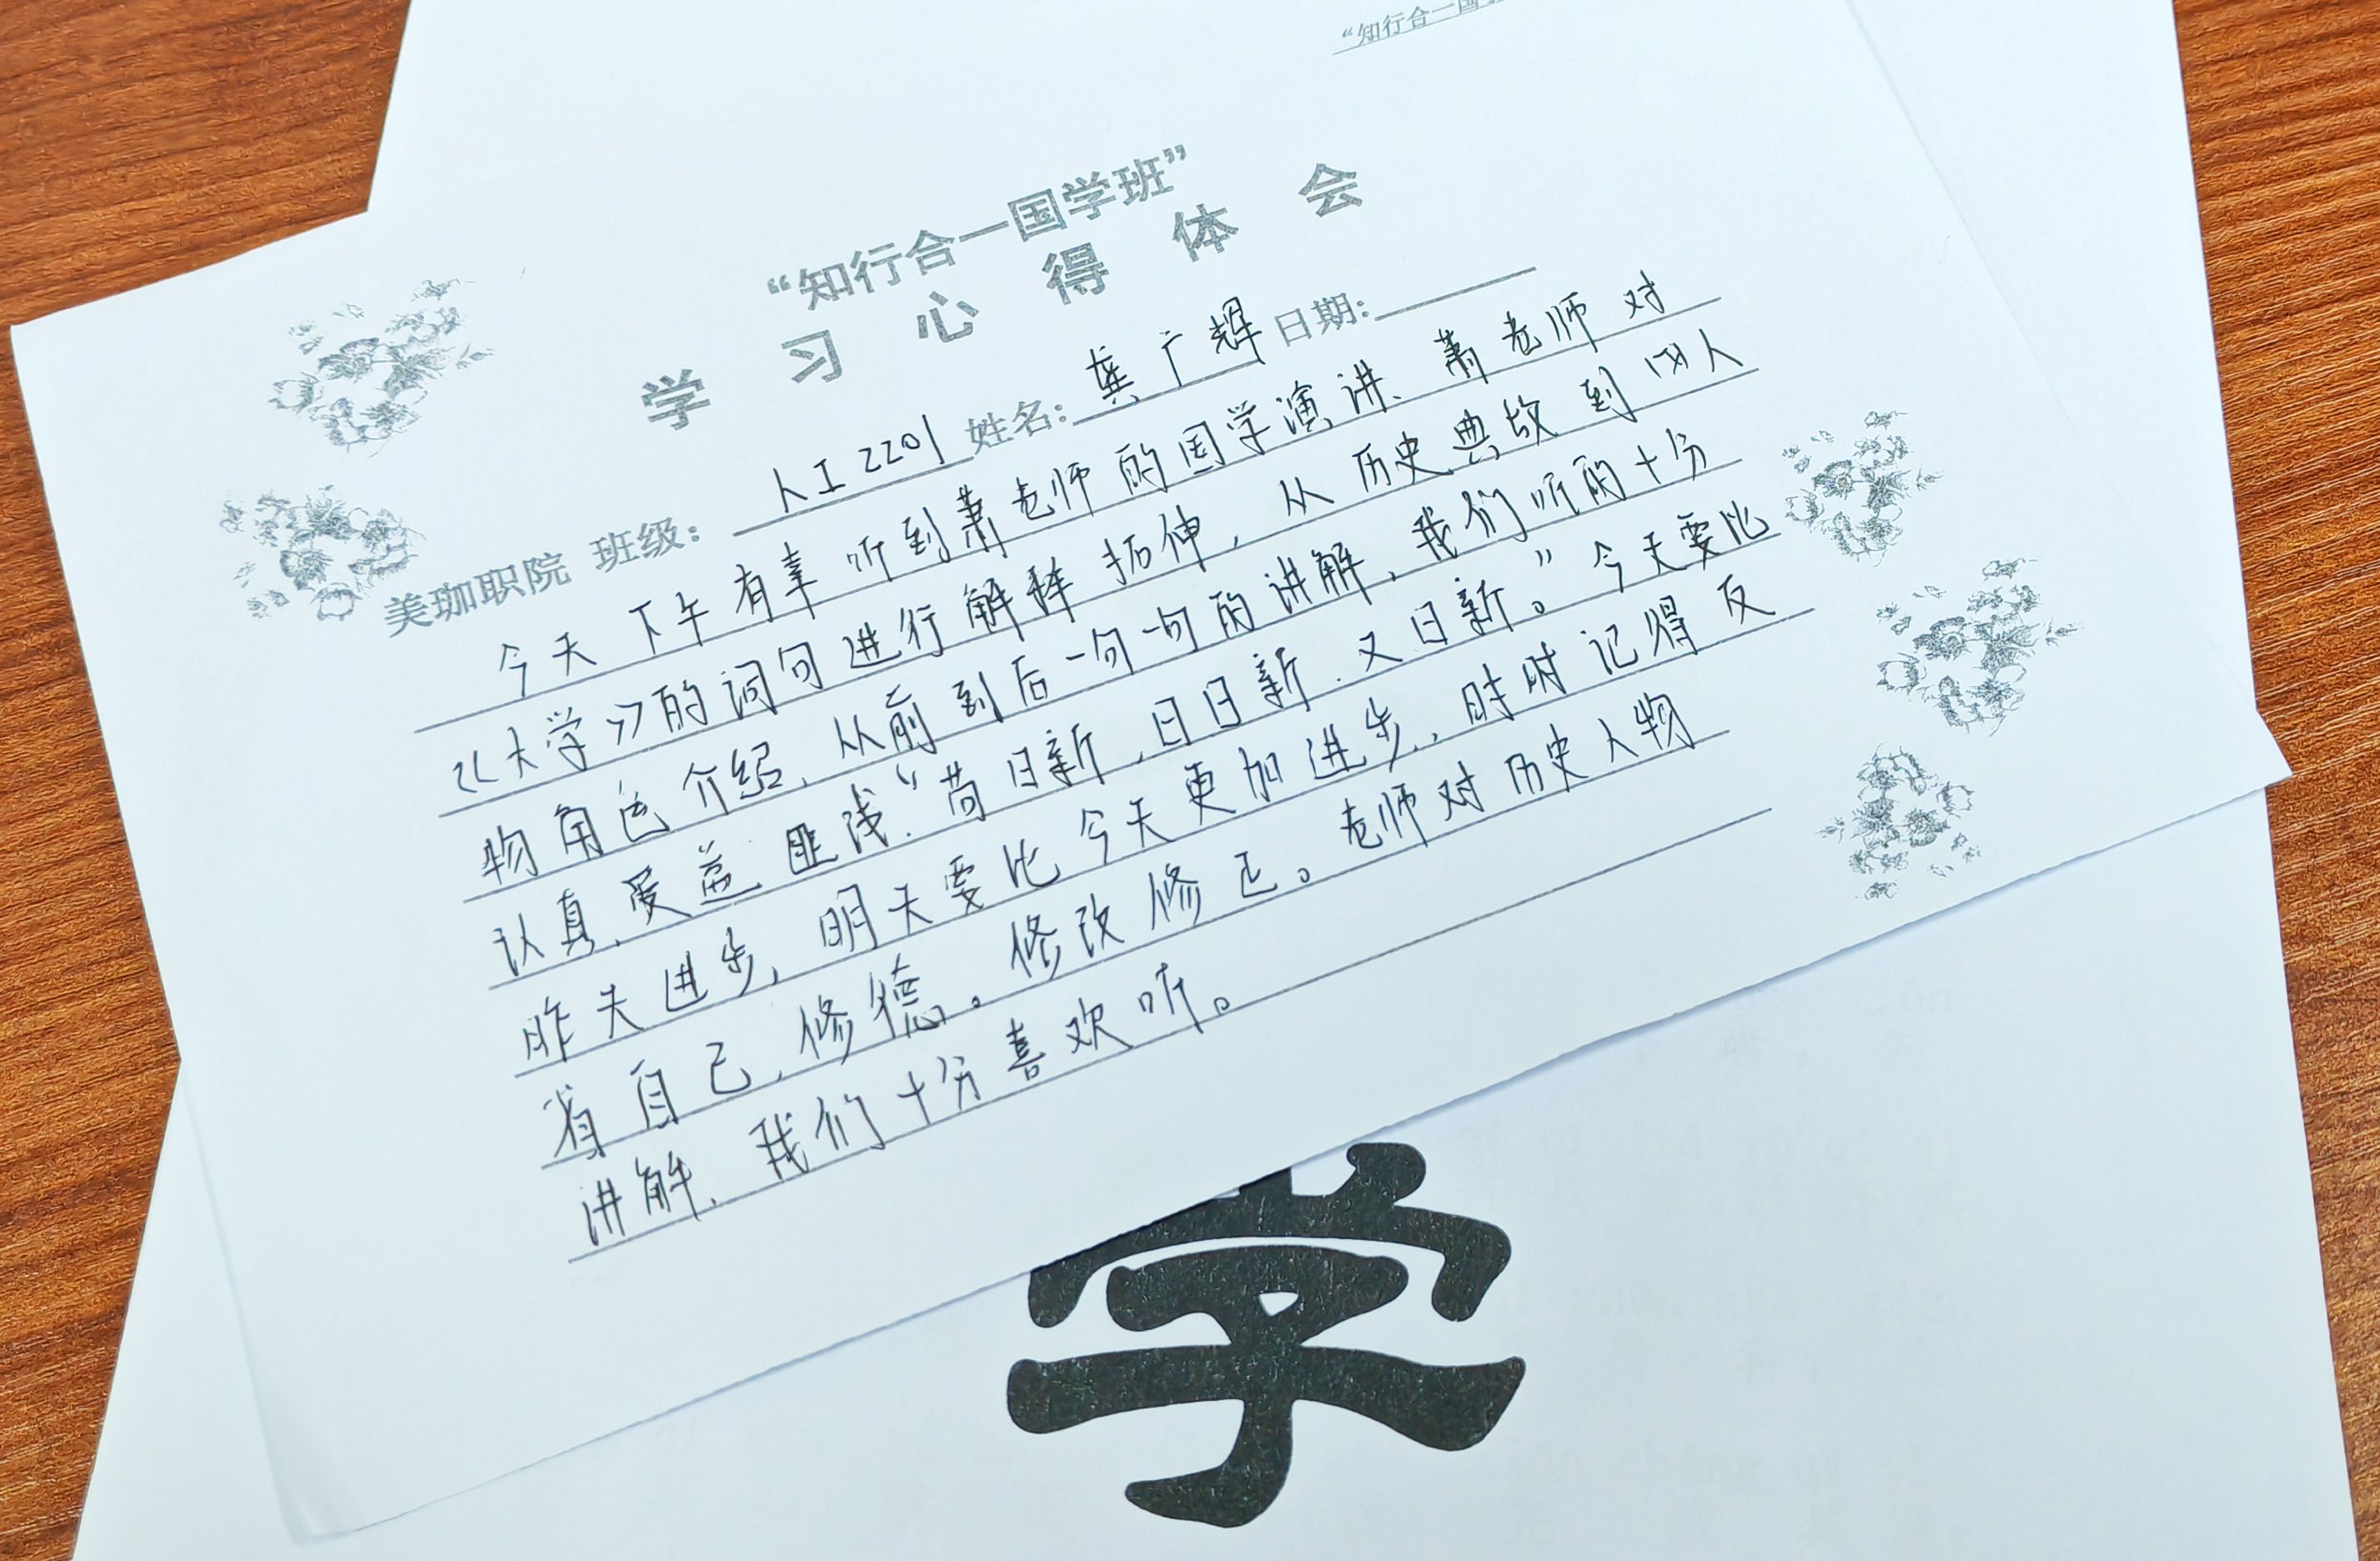 “知行合一国
“知行合一国学班”
学习心得体会
美珈职院 班级: 人工2201 姓名: 龚广辉 日期:
今天下午有幸听到萧老师的国学演讲、萧老师对
《大学》的词句进行解释拓伸，从历史典故到四人
物角色介绍、从前到后一句一句的讲解，我们听的十分
认真、受益匪浅.“苟日新，日日新，又日新。”今天要比
昨天进步，明天要比今天更加进步，时时记得反
省自己，修德。修改修己。老师对历史人物
讲解、我们十分喜欢听。
学